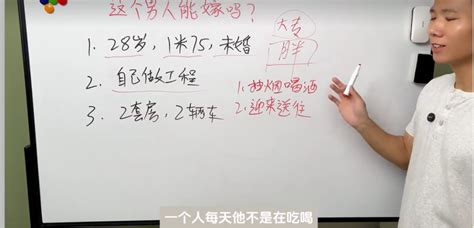 这个男人能嫁吗?
1. 28岁, 1米75, 未婚
2. 自己做工程
3. 2套房, 2辆车
大专
胖
1.抽烟喝酒
2.迎来送往
一个人每天他不是在吃喝